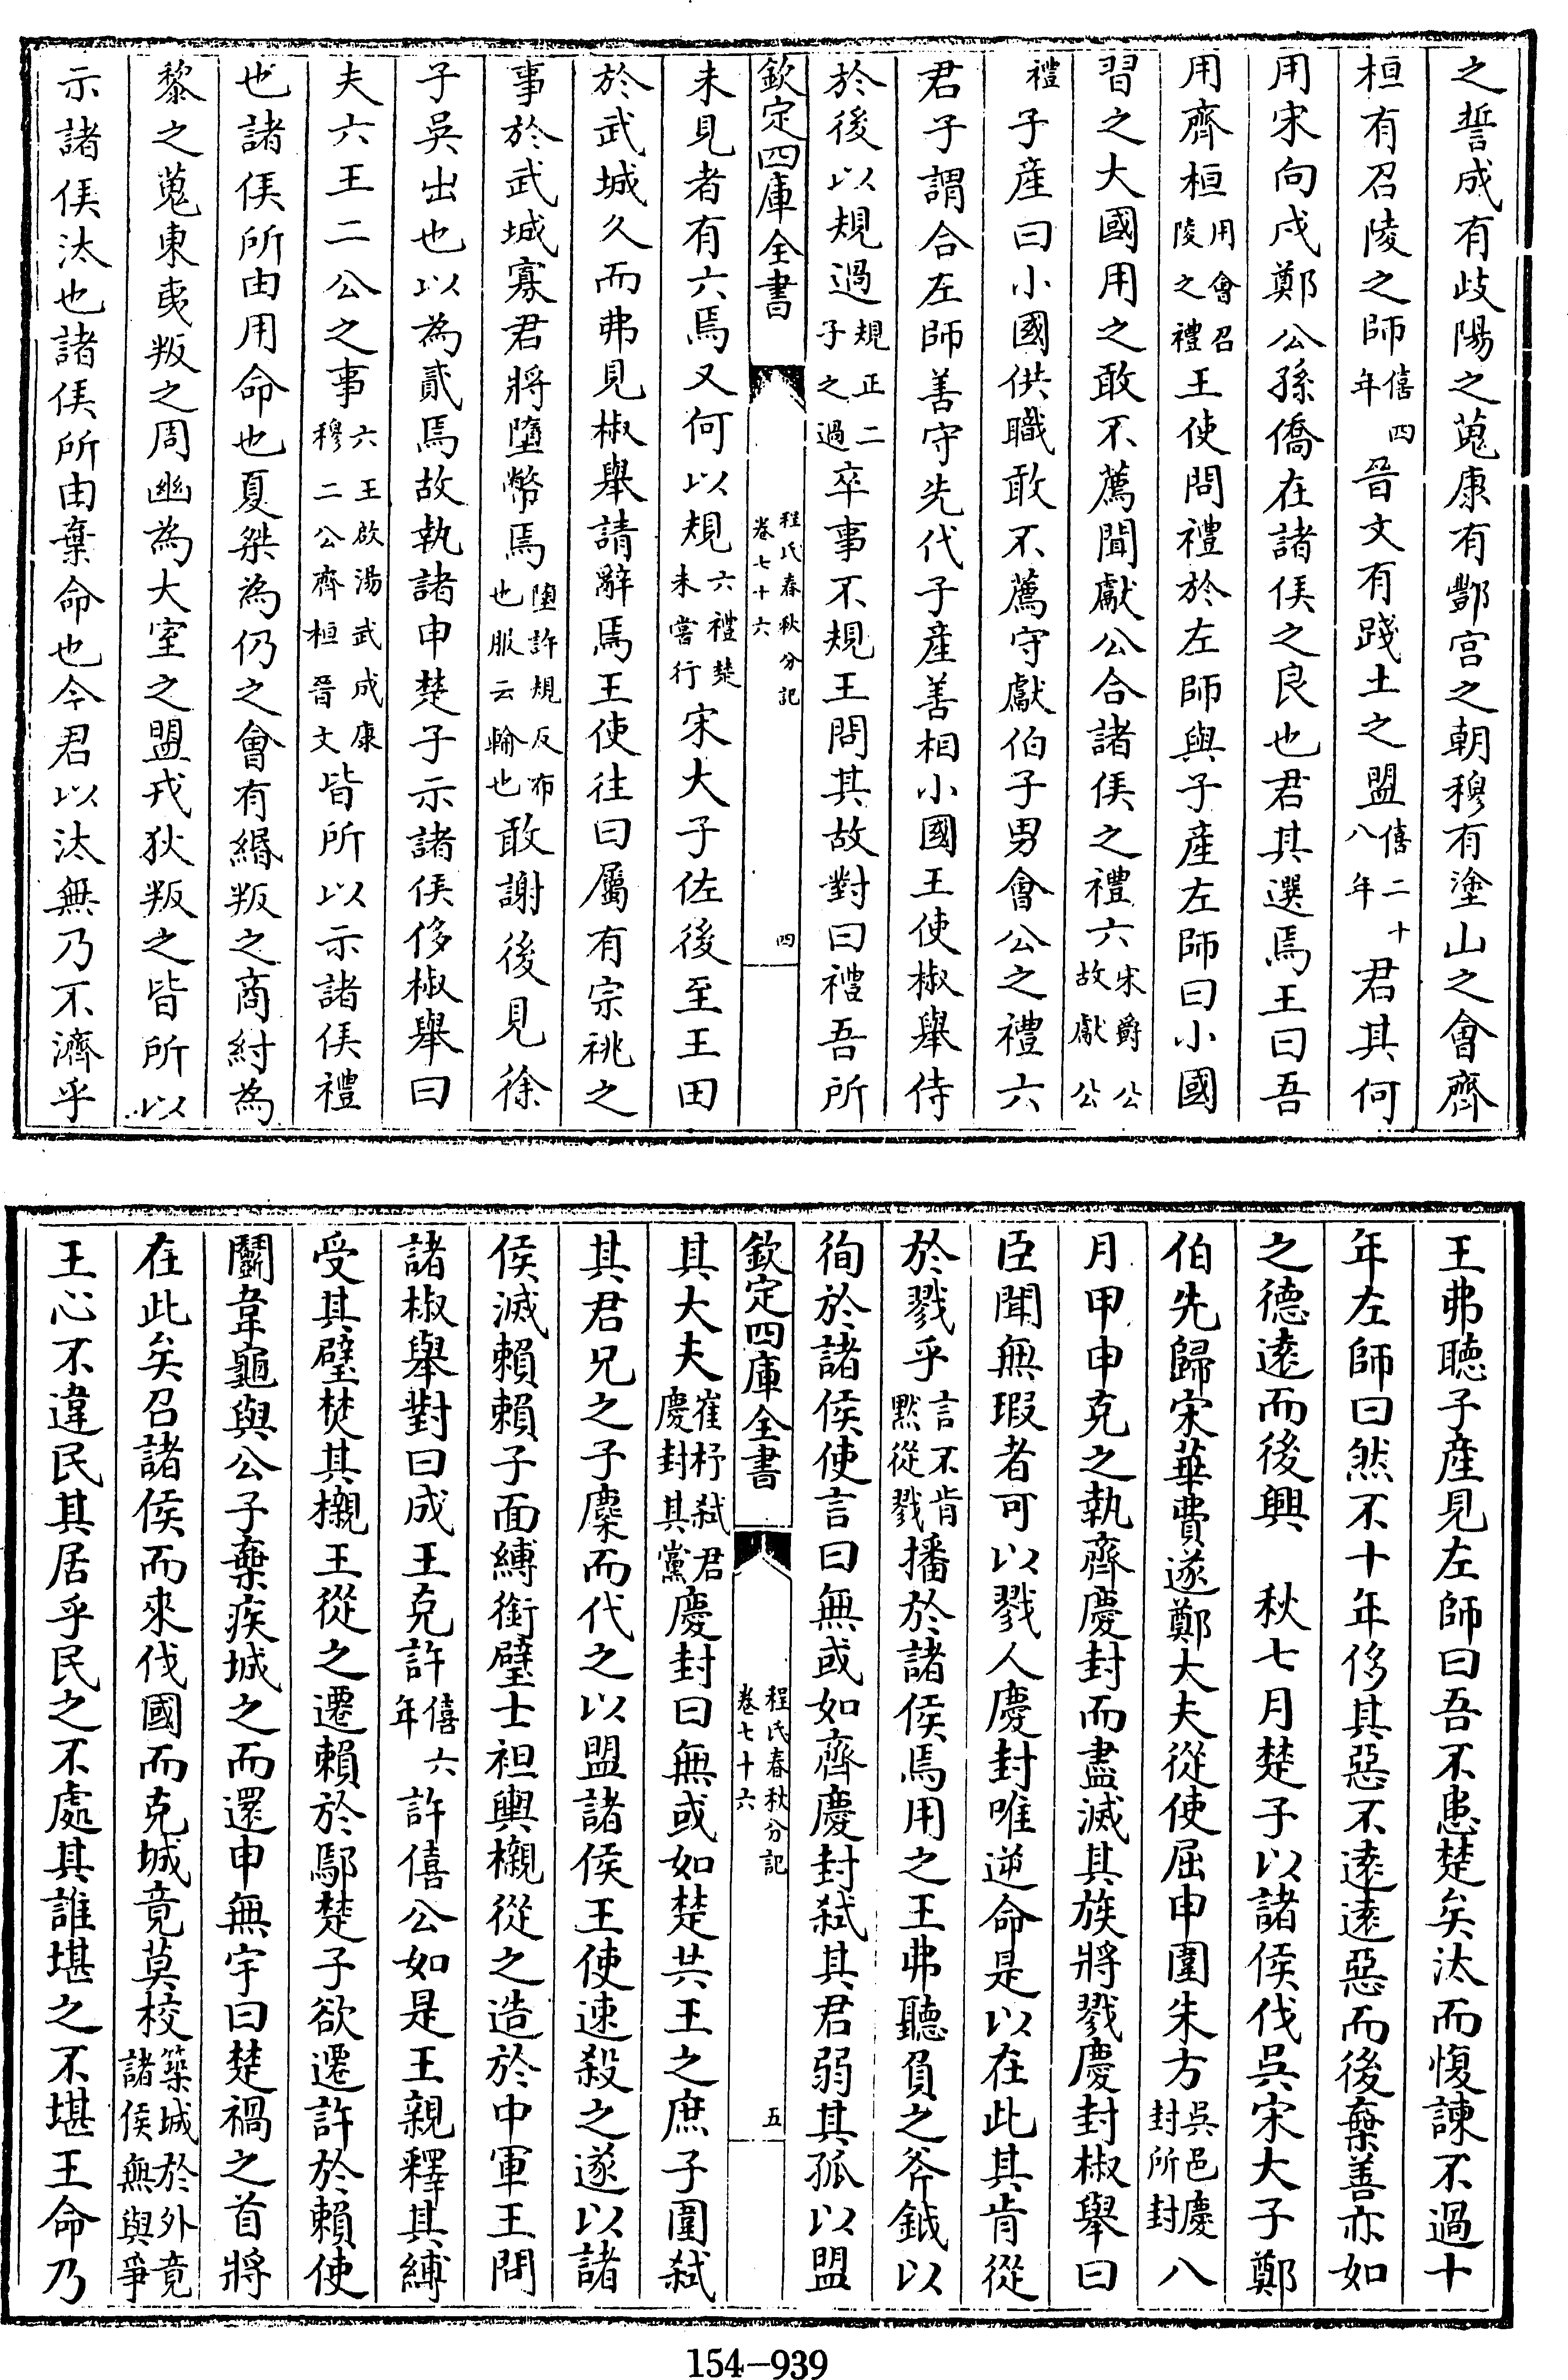 之誓成有歧陽之蒐康有酆宫之朝穆有塗山之會齊
桓有召陵之師僖四年晉文有踐土之盟僖二十八年君其何
用宋向戌鄭公孫僑在諸侯之良也君其選焉王曰吾
用齊桓用會召陵之禮王使問禮於左師與子產左師曰小國
習之大國用之敢不薦聞獻公合諸侯之禮六宋爵公故獻公
禮子產曰小國供職敢不薦守獻伯子男會公之禮六
君子謂合左師善守先代子產善相小國王使椒舉侍
於後以規過規正二子之過卒事不規王問其故對曰禮吾所
欽定四庫全書 程氏春秋分記卷七十六 四
未見者有六焉又何以規六禮楚未嘗行宋大子佐後至王田
於武城久而弗見椒舉請辭焉王使往曰屬有宗祧之
事於武城寡君將墮幣焉墮許規反布也服云輸也敢謝後見徐
子吳出也以為貳焉故執諸申楚子示諸侯侈椒舉曰
夫六王二公之事六王啟湯武成康穆二公齊桓晉文皆所以示諸侯禮
也諸侯所由用命也夏桀為仍之會有緡叛之商紂為
黎之蒐東夷叛之周幽為大室之盟戎狄叛之皆所以
示諸侯汰也諸侯所由棄命也今君以汰無乃不濟乎
王弗聽子產見左師曰吾不患楚矣汰而愎諫不過十
年左師曰然不十年侈其惡不遠遠惡而後棄善亦如
之德遠而後興 秋七月楚子以諸侯伐吳宋大子鄭
伯先歸宋華費遂鄭大夫從使屈申圍朱方吳邑慶封所封八
月甲申克之執齊慶封而盡滅其族將戮慶封椒舉曰
臣聞無瑕者可以戮人慶封唯逆命是以在此其肯從
於戮乎言不肯默從戮播於諸侯焉用之王弗聽負之斧鉞以
徇於諸侯使言曰無或如齊慶封弑其君弱其孤以盟
欽定四庫全書 程氏春秋分記卷七十六 五
其大夫崔杼弑君慶封其黨慶封曰無或如楚共王之庶子圍弑
其君兄之子麇而代之以盟諸侯王使速殺之遂以諸
侯滅賴賴子面縛銜璧士袒輿櫬從之造於中軍王問
諸椒舉對曰成王克許僖六年許僖公如是王親釋其縛
受其璧焚其櫬王從之遷賴於鄢楚子欲遷許於賴使
鬭韋龜與公子棄疾城之而還申無宇曰楚禍之首將
在此矣召諸侯而來伐國而克城竟莫校築城於外竟諸侯無與爭
王心不違民其居乎民之不處其誰堪之不堪王命乃
154-939